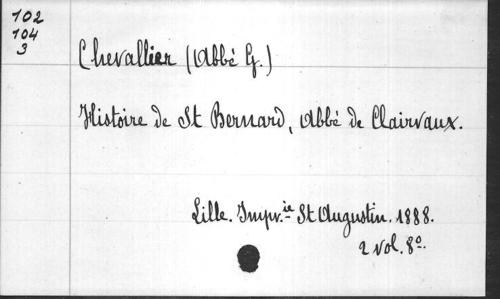 102
104
3
Chevallier (Abbé G.)
Histoire de St Bernard, Abbé de Clairvaux.
Lille. Impr.ie St Augustin. 1888.
2 vol. 8o.